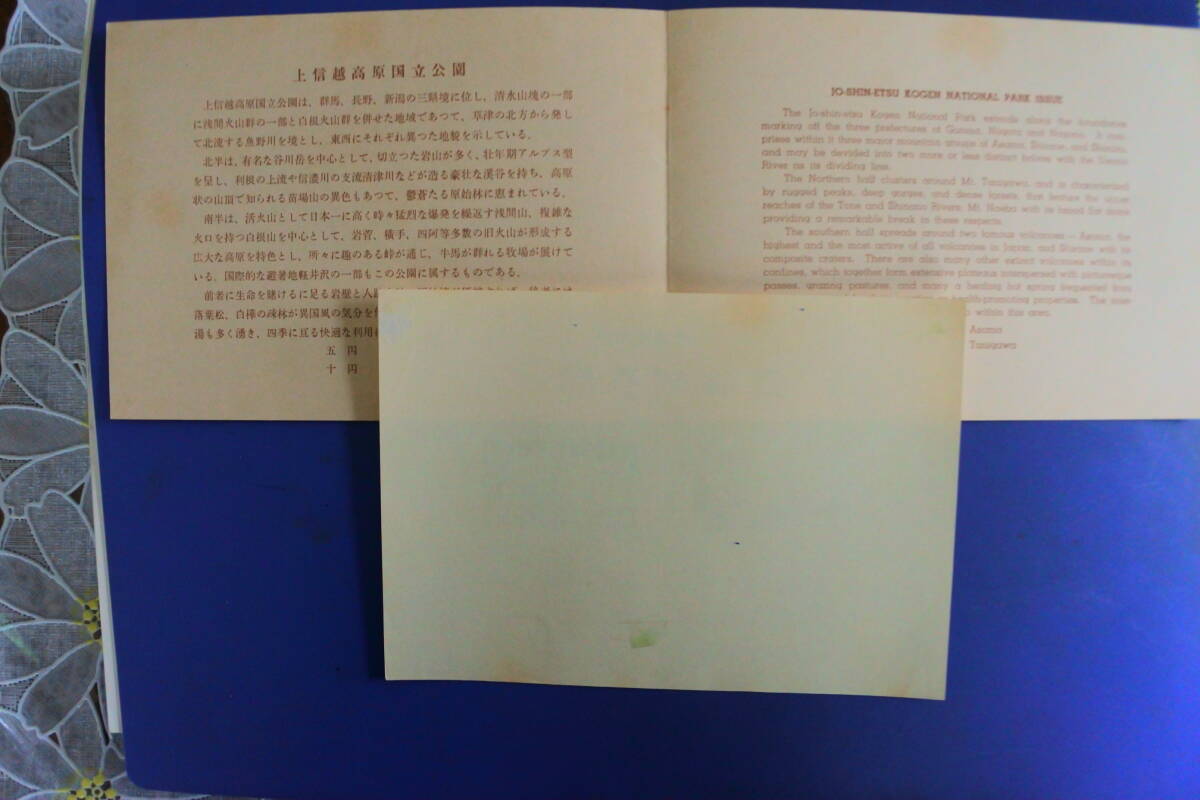 上信越高原国立公園
上信越高原国立公園は、群馬、長野、新潟の三県境に位し、清水山塊の一部
に浅間火山群の一部と白根火山群を併せた地域であつて、草津の北方から発し
て北流する魚野川を境とし、東西にそれぞれ異つた地貌を示している。
北半は、有名な谷川岳を中心として、切立つた岩山が多く、壮年期アルプス型
を呈し、利根の上流や信濃川の支流清津川などが造る豪壮な溪谷を持ち、高原
状の山頂で知られる苗場山の異色もあつて、鬱蒼たる原始林に恵まれている。
南半は、活火山として日本一に高く時々猛烈な爆発を繰返す浅間山、複雑な
火口を持つ白根山を中心として、岩菅、横手、四阿等多数の旧火山が形成する
広大な高原を特色とし、所々に趣のある峠が通じ、牛馬が群れる牧場が展けて
いる。国際的な避暑地軽井沢の一部もこの公園に属するものである。
前者に生命を賭けるに足る岩壁と人
落葉松、白樺の疎林が異国風の気分を
湯も多く湧き、四季に亙る快適な利用
五円
十円
JO-SHIN-ETSU KOGEN NATIONAL PARK ISSUE
The Jo-shin-etsu Kogen National Park extends along the boundaries
marking off the three prefectures of Gunma, Niigata and Nagano. It com-
prises within it three major mountain groups of Asama, Shirane, and Shimizu,
and may be devided into two more or less distinct halves with the
River as its dividing line.
The Northern half clusters around Mt. Tanigawa, and is characterized
by rugged peaks, deep gorges, and dense forests, that feature the upper
reaches of the Tone and Shinano Rivers. Mt. Naeba with its broad flat dome
providing a remarkable break in these respects.
The southern half spreads around two famous volcanoes—Asama, the
highest and the most active of all volcanoes in Japan, and Shirane with its
composite craters. There are also many other extinct volcanoes within its
confines, which together form extensive plateaus interspersed with picturesque
passes, grazing pastures, and many a healing hot spring frequented from
health-promoting properties. The
within this area.
Asama
Tanigawa